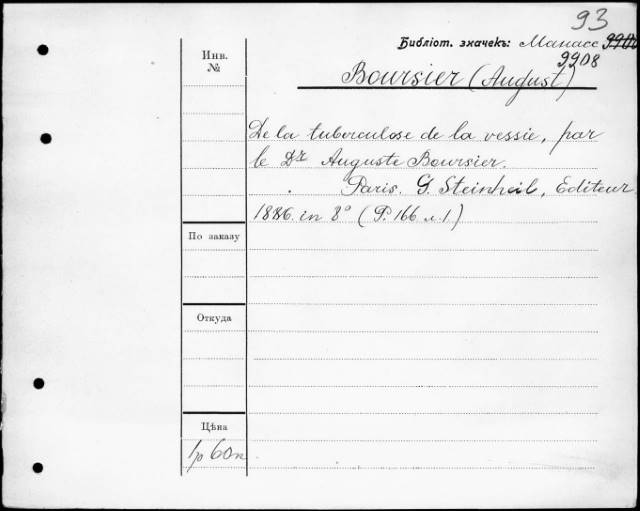 93
Библіот. значекъ: Манасс 9900
9908
Boursier (August)
Инв.
№
De la tuberculose de la vessie, par
le Dr Auguste Boursier.
Paris. G. Steinheil, Editeur
1886. in 8° (P. 166 л. 1)
По заказу
Откуда
Цѣна
1р 60к